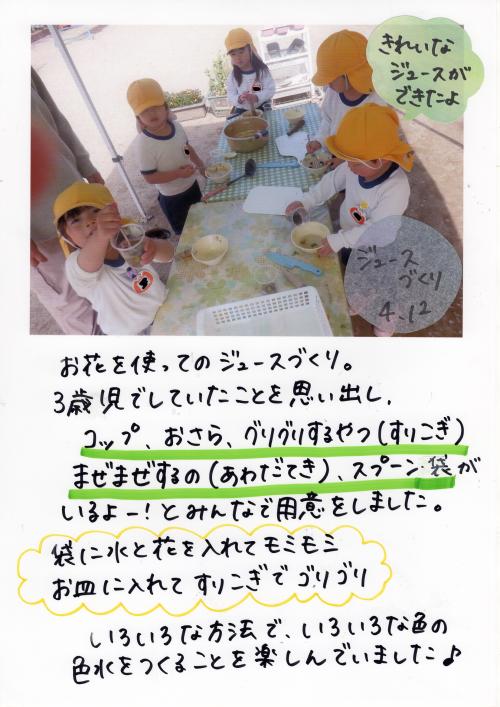 きれいな
ジュースが
できたよ
ジュース
づくり
4.12
お花を使ってのジュースづくり。
3歳児でしていたことを思い出し、
コップ、おさら、グリグリするやつ(すりこぎ)
まぜまぜするの(あわだてき)、スプーン・袋が
いるよー!とみんなで用意をしました。
袋に水と花を入れてモミモミ
お皿に入れてすりこぎでゴリゴリ
いろいろな方法で、いろいろな色の
色水をつくることを楽しんでいました♪